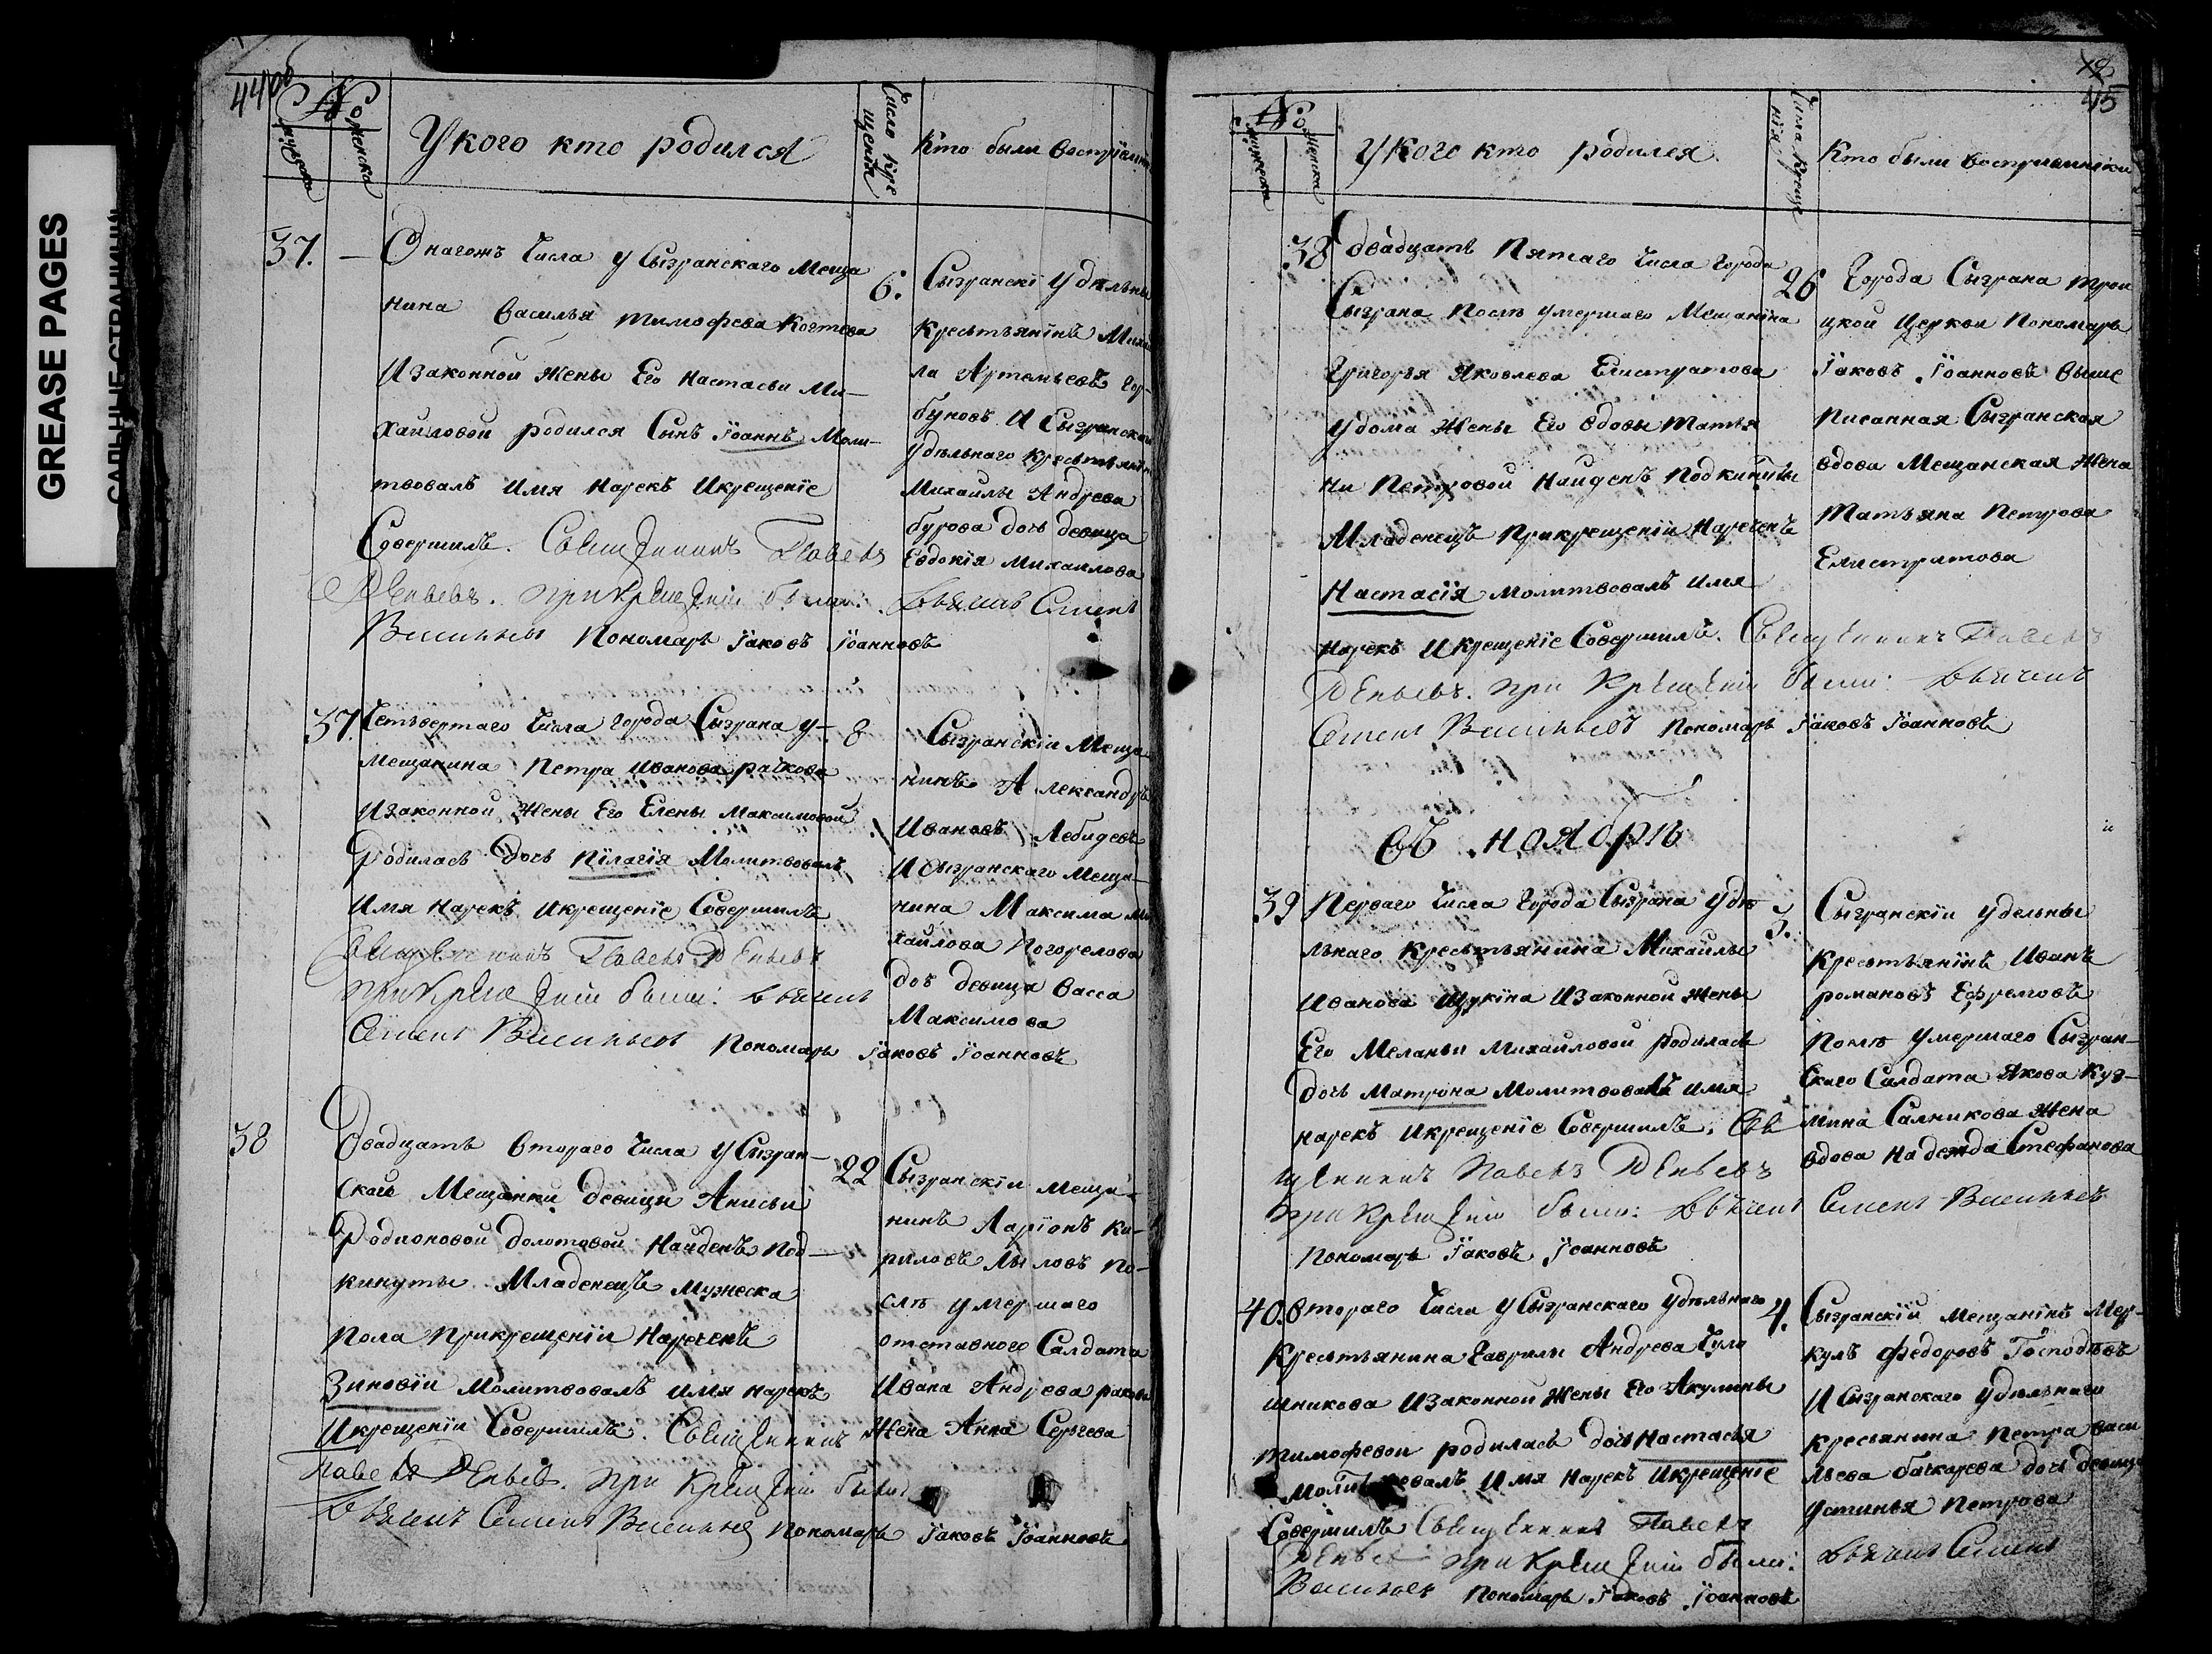 GREASE PAGES
44об
№
мужеска
женска
У кого кто родился
Число крещенїя
Кто были воспрїемни
37.
Онагожъ числа у Сызранскаго Меща
нина Василья Тимофеева
И законной жены Его Настасьи Ми-
хайловой родился Сынъ Iоаннъ Моли-
твовалъ имя нарекъ И крещенїе
Совершилъ. Священникъ Павелъ
при крещенїи были: дьячекъ Семенъ
Васильевъ Пономарь Iаковъ Iоанновъ
6.
Сызранскї удѣльны
крестьянїнъ Михаи
ла Артемьевъ Гор-
буновъ И Сызранскаго
удѣльнаго крестьяни
Михайлы Андреева
бурова дочь девица
Евдокїя Михайлова
37.
Четвертаго числа города Сызрана у-
Мещанина Петра Иванова рачкова
И законной жены Его Елены Максимовой
родилась дочь Пїлагїя Молитвовалъ
Имя нарекъ И крещенїе Совершилъ
Священникъ Павелъ
при крещенїи были: дьячекъ
Семенъ Васильевъ Пономарь Iаковъ Iоанновъ
8
Сызранскїи Меща
нинъ Александръ
Ивановъ Лебидевъ
И Сызранскаго Меща-
нина Максима Ми
хайлова Погорелова
доч девица Васса
Максимова
38
Двадцать втораго числа у Сызран-
скаго Мещанки девицы Анисьи
Родионовой Долотовой Найденъ Под-
кинуты Младенецъ мужеска
пола При крещенїи Нареченъ
Зиновїи Молитвовалъ имя нарекъ
И крещенїи Совершилъ. Священникъ
Павелъ при крещенїи были
дьячекъ Семенъ Васильев Пономарь Iаковъ Iоанновъ
22
Сызранскїи меща-
нинъ Ларїонъ Ки-
риловъ Лыловъ По-
слѣ умершаго
отставного Салдата
Ивана Андреева ракова
Жена Анна Сергеева
45
№
мужеска
женска
У кого кто родился
Числа крещенїя
Кто были восприемники
38
двадцать Пятаго числа города
Сызрана Послѣ умершаго Мещанїна
Григорья Яковлева Елистратова
у дома жены Его вдовы Татья
ны Петровой Найденъ Подкинты
Младенецъ При крещенїи Нареченъ
Настасїя молитвовалъ имя
нарекъ И крещенїе Совершилъ. Священникъ Павелъ
при крещенїи были: дьячекъ
Семенъ Васильевъ Пономарь Iаковъ Iоанновъ
26
Города Сызрана Трои
цкой Церкви Пономарь
Iаковъ Iоанновъ Выше
писанная Сызранская
вдова Мещанская Жена
Татьяна Петрова
Елистратова
Въ ноябрѣ
39
Перваго числа города Сызрана удѣ
льнаго крестьянина Михайлы
Иванова Щукїна И законной жены
Его Меланьи Михайловой родилась
дочь Матрона Молитвовалъ имя
нарекъ И крещенїе Совершилъ. Свя
щенникъ Павелъ
при крещенїи были: дьячекъ Семенъ Васильевъ
Пономарь Iаковъ Iоанновъ
3.
Сызранскїи удельны
крестьянїнъ Иванъ
романовъ Ефремовъ
Послѣ умершаго Сызран-
скаго Салдата Якова Куз-
мина Салникова жена
вдова Надежда Стефанова
40.
Втораго числа у Сызранскаго удѣльнаго
крестьянина Гаврилы Андреева Чуло
шникова И законной жены Его Акулины
Тимофевои родилась дочь Настасья
Молитвовалъ имя нарекъ И крещенїе
Совершилъ Священникъ Павелъ
при крещенїи были: дьячекъ Семенъ
Васильевъ Пономарь Iаковъ Iоанновъ
4.
Сызранскїи мещанїнъ Мер-
кулъ Федоровъ
И Сызранскаго удѣльнаго
кресьянина Петра Васи
льева бачкарева дочь девица
Устинья Петрова